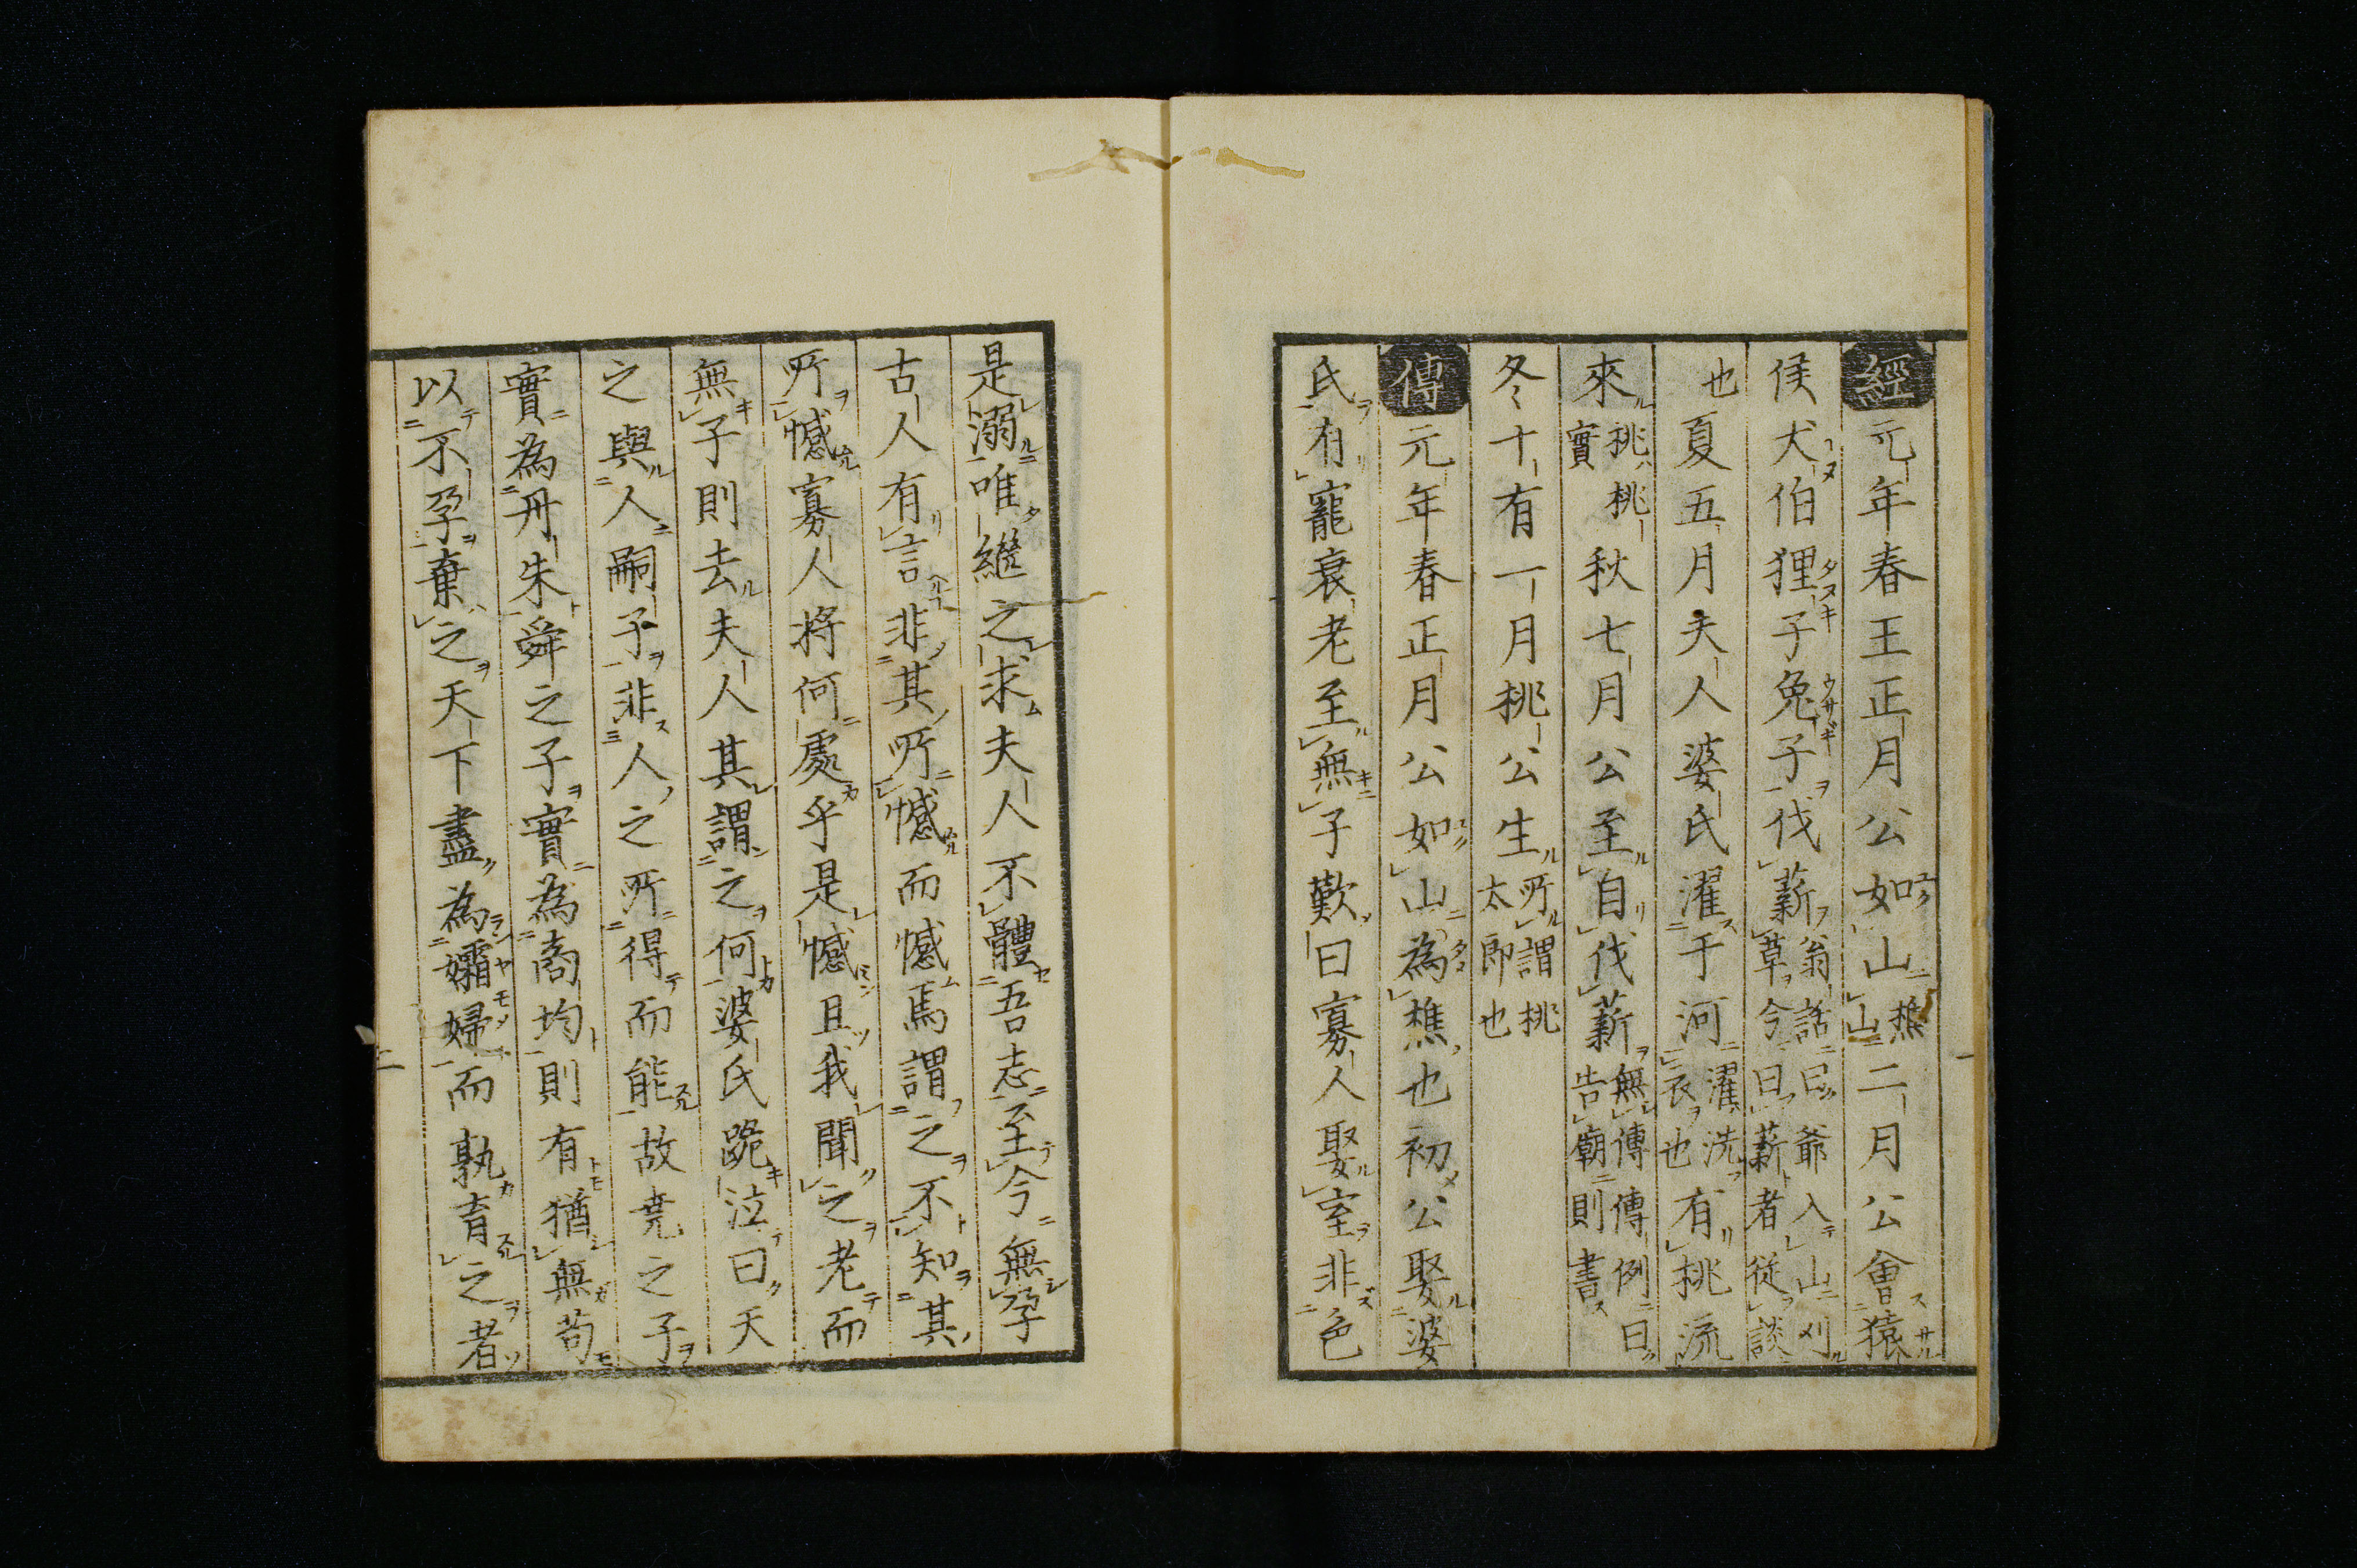 經元年春王正月公如山樵山二月公會猿
侯犬伯狸子兔子伐薪翁話曰爺入山刈草今曰薪者從談
也夏五月夫人婆氏濯于河濯洗衣也有桃流
來桃實桃秋七月公至自伐薪無傳傳例曰告廟則書
冬十有一月桃公生所謂桃太郎也
傳元年春正月公如山為樵也初公娶婆
氏有寵衰老至無子歎曰寡人娶室非色
是溺唯繼之求夫人不體吾志至今無孕
古人有言非其所憾而憾焉謂之不知其
所憾寡人將何處乎是憾且我聞之老而
無子則去夫人其謂之何婆氏跪泣曰天
之與人嗣子非人之所得而能故堯之子
實為丹朱舜之子實為商均則有猶無苟
以不孕棄之天下盡為孀婦而孰育之者
二